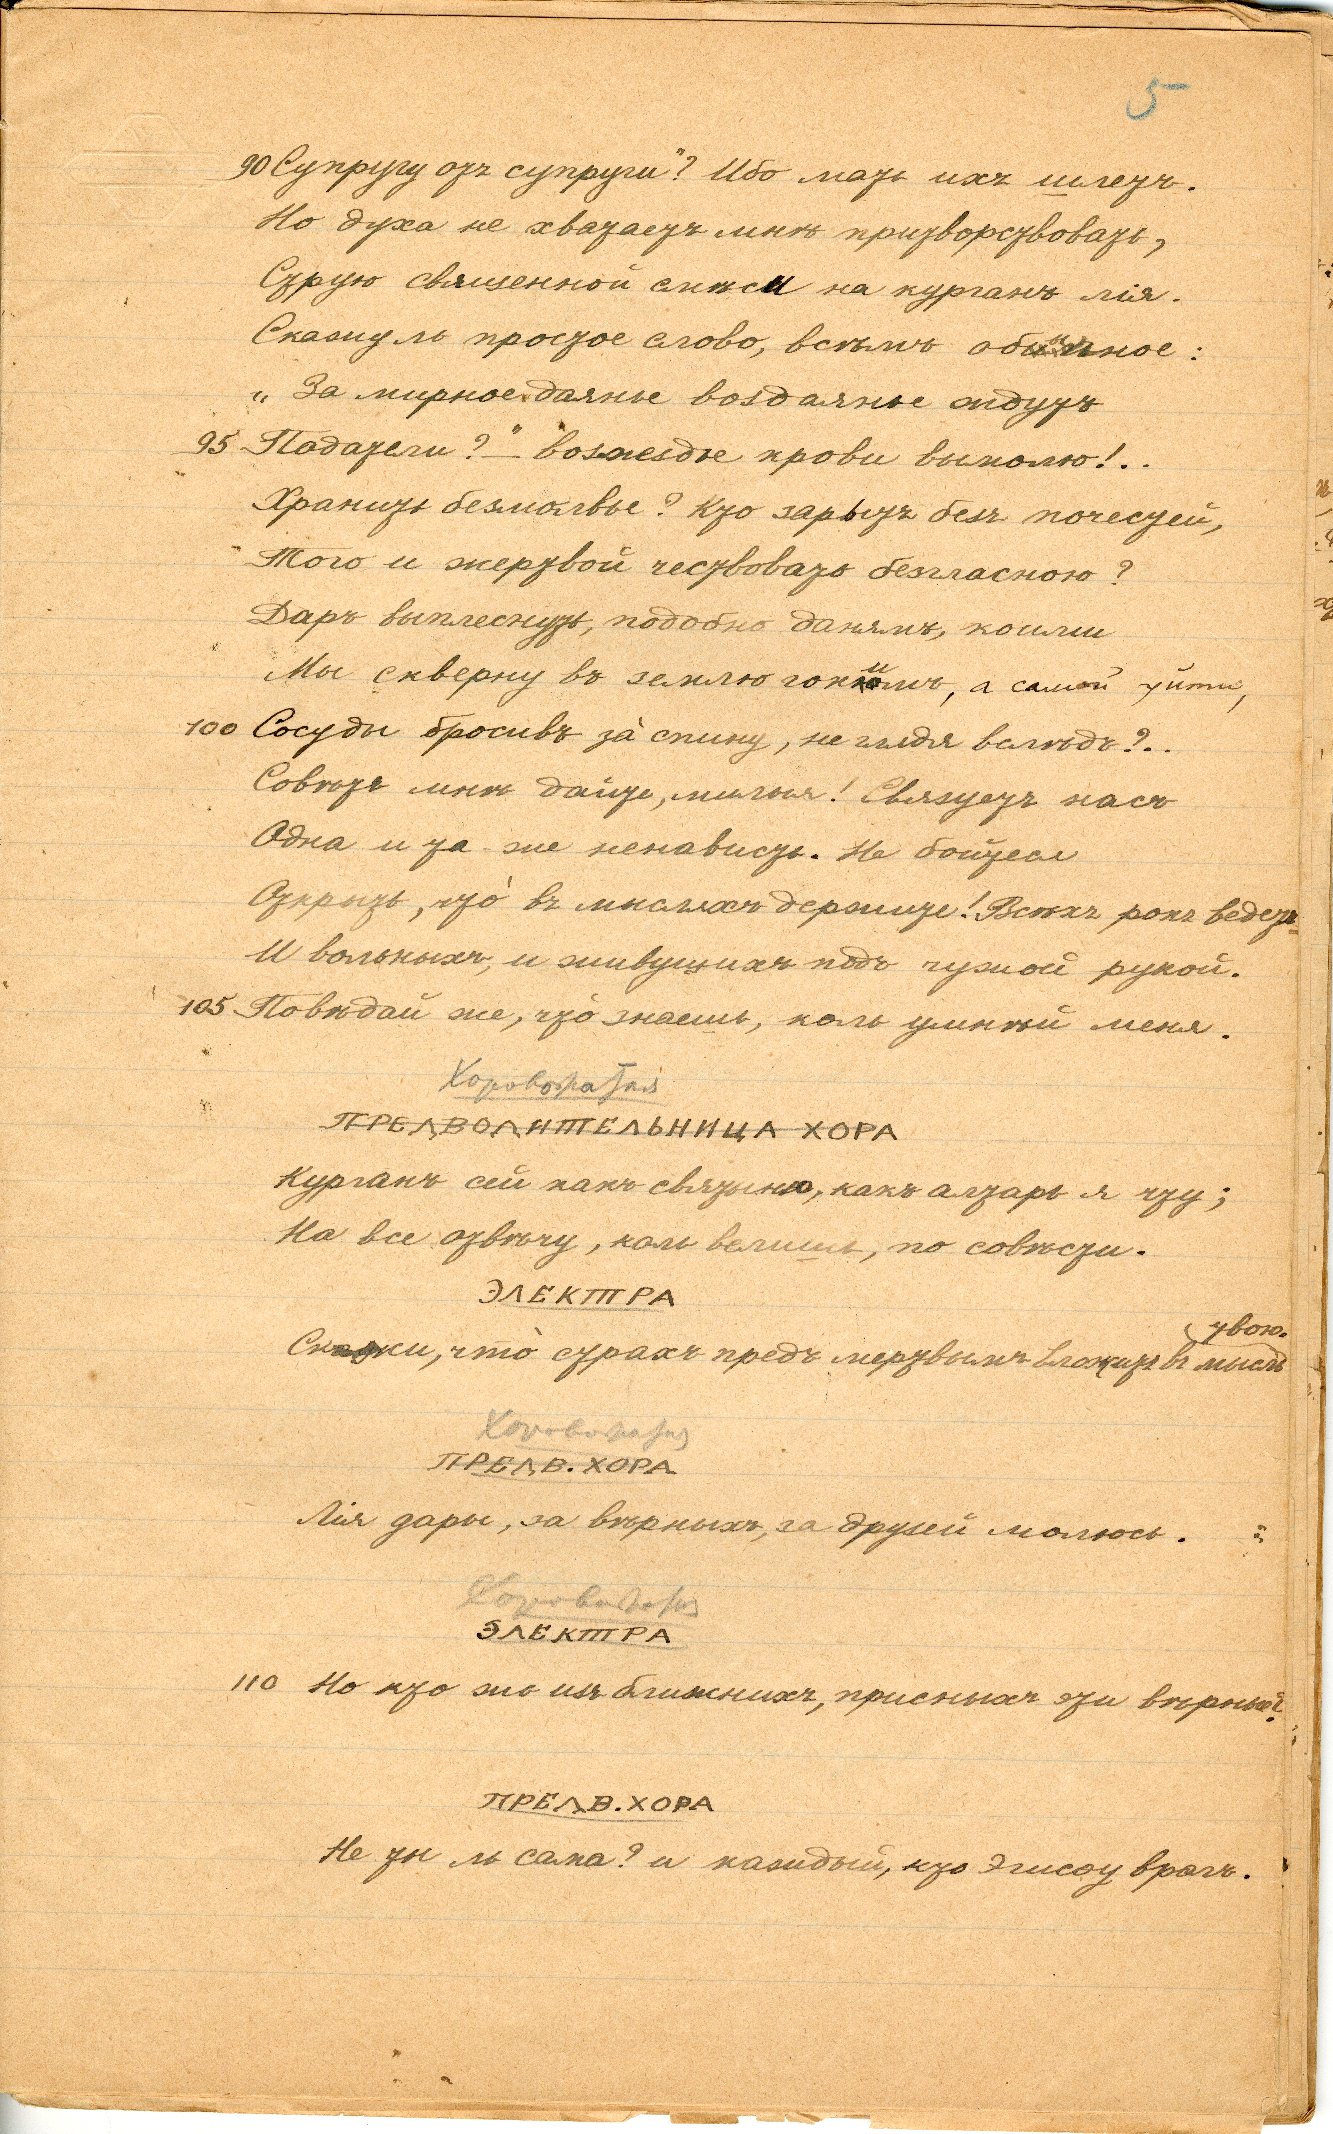 5
90 Супругу отъ супруги"? Ибо мать ихъ шлетъ.
Но духа не хватаетъ мнѣ притворствовать,
Струю священной смѣси на курганъ лія.
Скажу ль простое слово, всѣмъ обычное:
„За мирное даянье воздаянье ждутъ
95 Податели?" – возмездье крови вымолю!..
Хранить безмолвье? Кто зарытъ безъ почестей,
Того и жертвой чествовать безгласною?
Даръ выплеснуть, подобно даня̀мъ, коими
Мы скверну въ землю гонимъ, а самой уйти,
100 Сосуды бросивъ за̀ спину, не глядя вслѣдъ?..
Совѣтъ мнѣ дайте, милыя! Связуетъ насъ
Одна и та-же ненависть. Не бойтеся
Открыть, что̀ въ мысляхъ держите! Всѣхъ рокъ ведетъ
И вольныхъ, и живущихъ подъ чужой рукой.
105 Повѣдай же, что̀ знаешь, коль умнѣй меня.
Хоровожатая
ПРЕДВОДИТЕЛЬНИЦА ХОРА
Курганъ сей какъ святыню, какъ алтарь я чту;
На все отвѣчу, коль велишь, по совѣсти.
ЭЛЕКТРА
твою.
Скажи, что̀ страхъ предъ мертвымъ вложитъ въ мысль
Хоровожатая
ПРЕДВ. ХОРА
Лія дары, за вѣрныхъ, за друзей молюсь.
Хоровожатая
ЭЛЕКТРА
110 Но кто жъ изъ ближнихъ, присныхъ эти вѣрные?
ПРЕДВ. ХОРА
Не ты ль сама? и каждый, кто Эгисѳу врагъ.